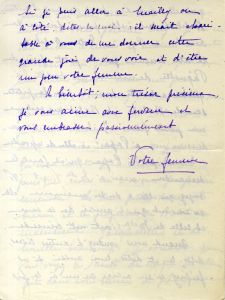 Si je puis aller à Nailly ou
à côté, dites le moi : il serait chari-
table à vous de me donner cette
grande joie de vous voir et d'être
un peu votre femme.
À bientôt, mon trésor précieux,
je vous aime avec ferveur et
vous embrasse passionnément
Votre femme